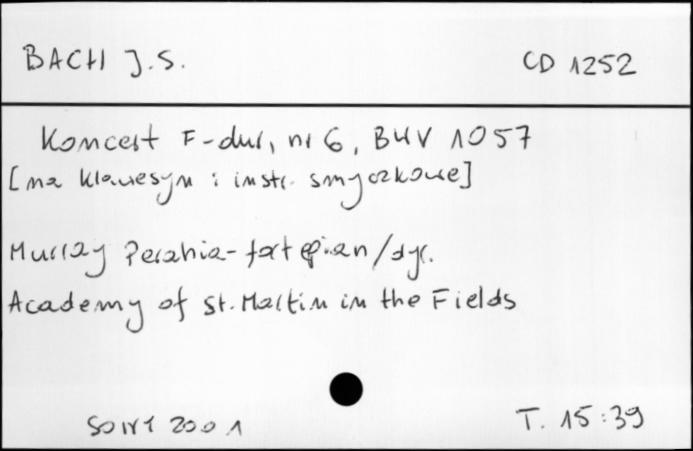 BACH J.S.
CD 1252
Koncert F-dur, nr 6, BWV 1057
[na klawesyn i instr. smyczkowe]
Murray Perahia - fortepian/dyr.
Academy of St. Martin in the Fields
SONY 2001
T. 15:39